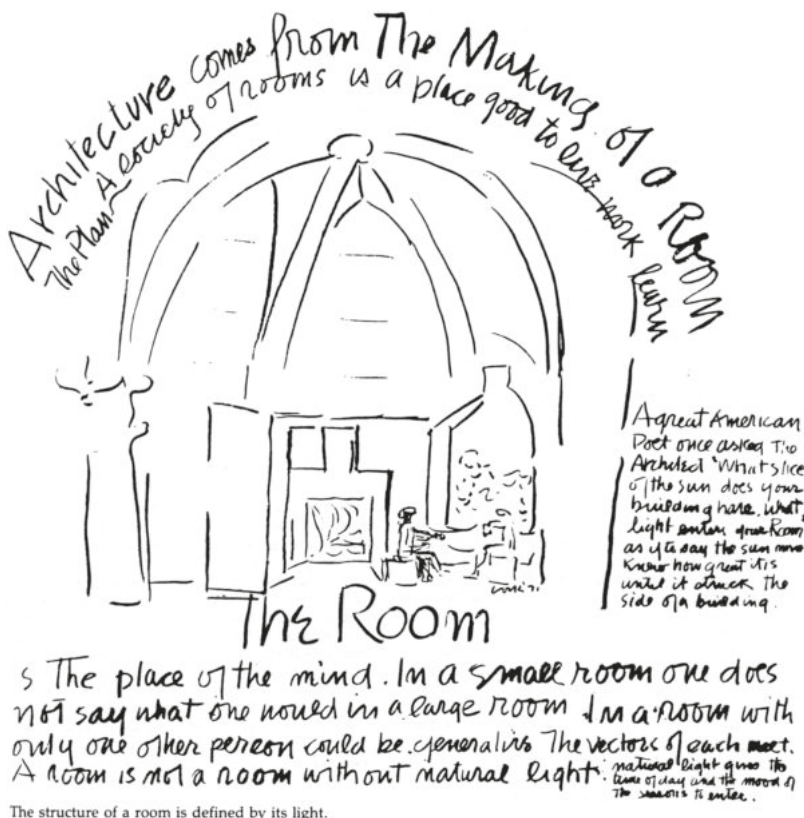 Architecture comes from The Making of a Room
The Plan A society of rooms is a place good to live work learn
A great American
Poet once asked the
Architect 'What slice
of the sun does your
building have. What
light enters your Room
as if to say the sun never
knew how great it is
until it struck the
side of a building.
The Room
s The place of the mind. In a small room one does
not say what one would in a large room In a room with
only one other person could be generative The vectors of each meet.
A room is not a room without natural light natural light gives the
time of day and the mood of
the seasons to enter.
The structure of a room is defined by its light.